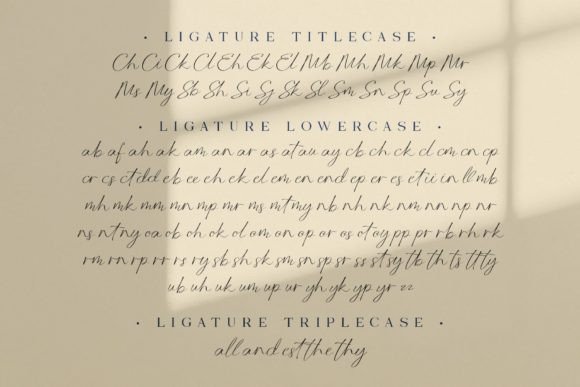 • LIGATURE TITLECASE •
Ch Ci Ck Cl Eh Ek El Mb Mh Mk Mp Mr
Ms My Sb Sh Si Sj Sk Sl Sm Sn Sp Su Sy
• LIGATURE LOWERCASE •
ab af ah ak am an ar as at au ay cb ch ck cl cm cn cp
cr cs ct dd eb ee eh ek el em en end ep er es et ii in ll mb
mh mk mm mn mp mr ms mt my nb nh nk nm nn np nr
ns nt ny oa ob oh ok ol om on op or os ot oy pp pr rb rh rk
rm rn rp rr rs ry sb sh sk sm sn sp sr ss st sy tb th ts tt ty
ub uh uk um up ur yh yk yp yr zz
• LIGATURE TRIPLECASE •
all and est the thy